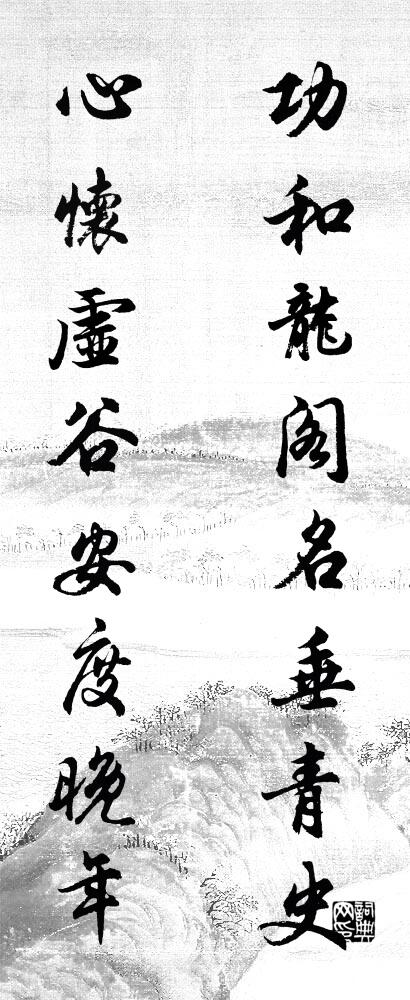 功和龍阁名垂青史
心懷虛谷安度晚年
詞典網印